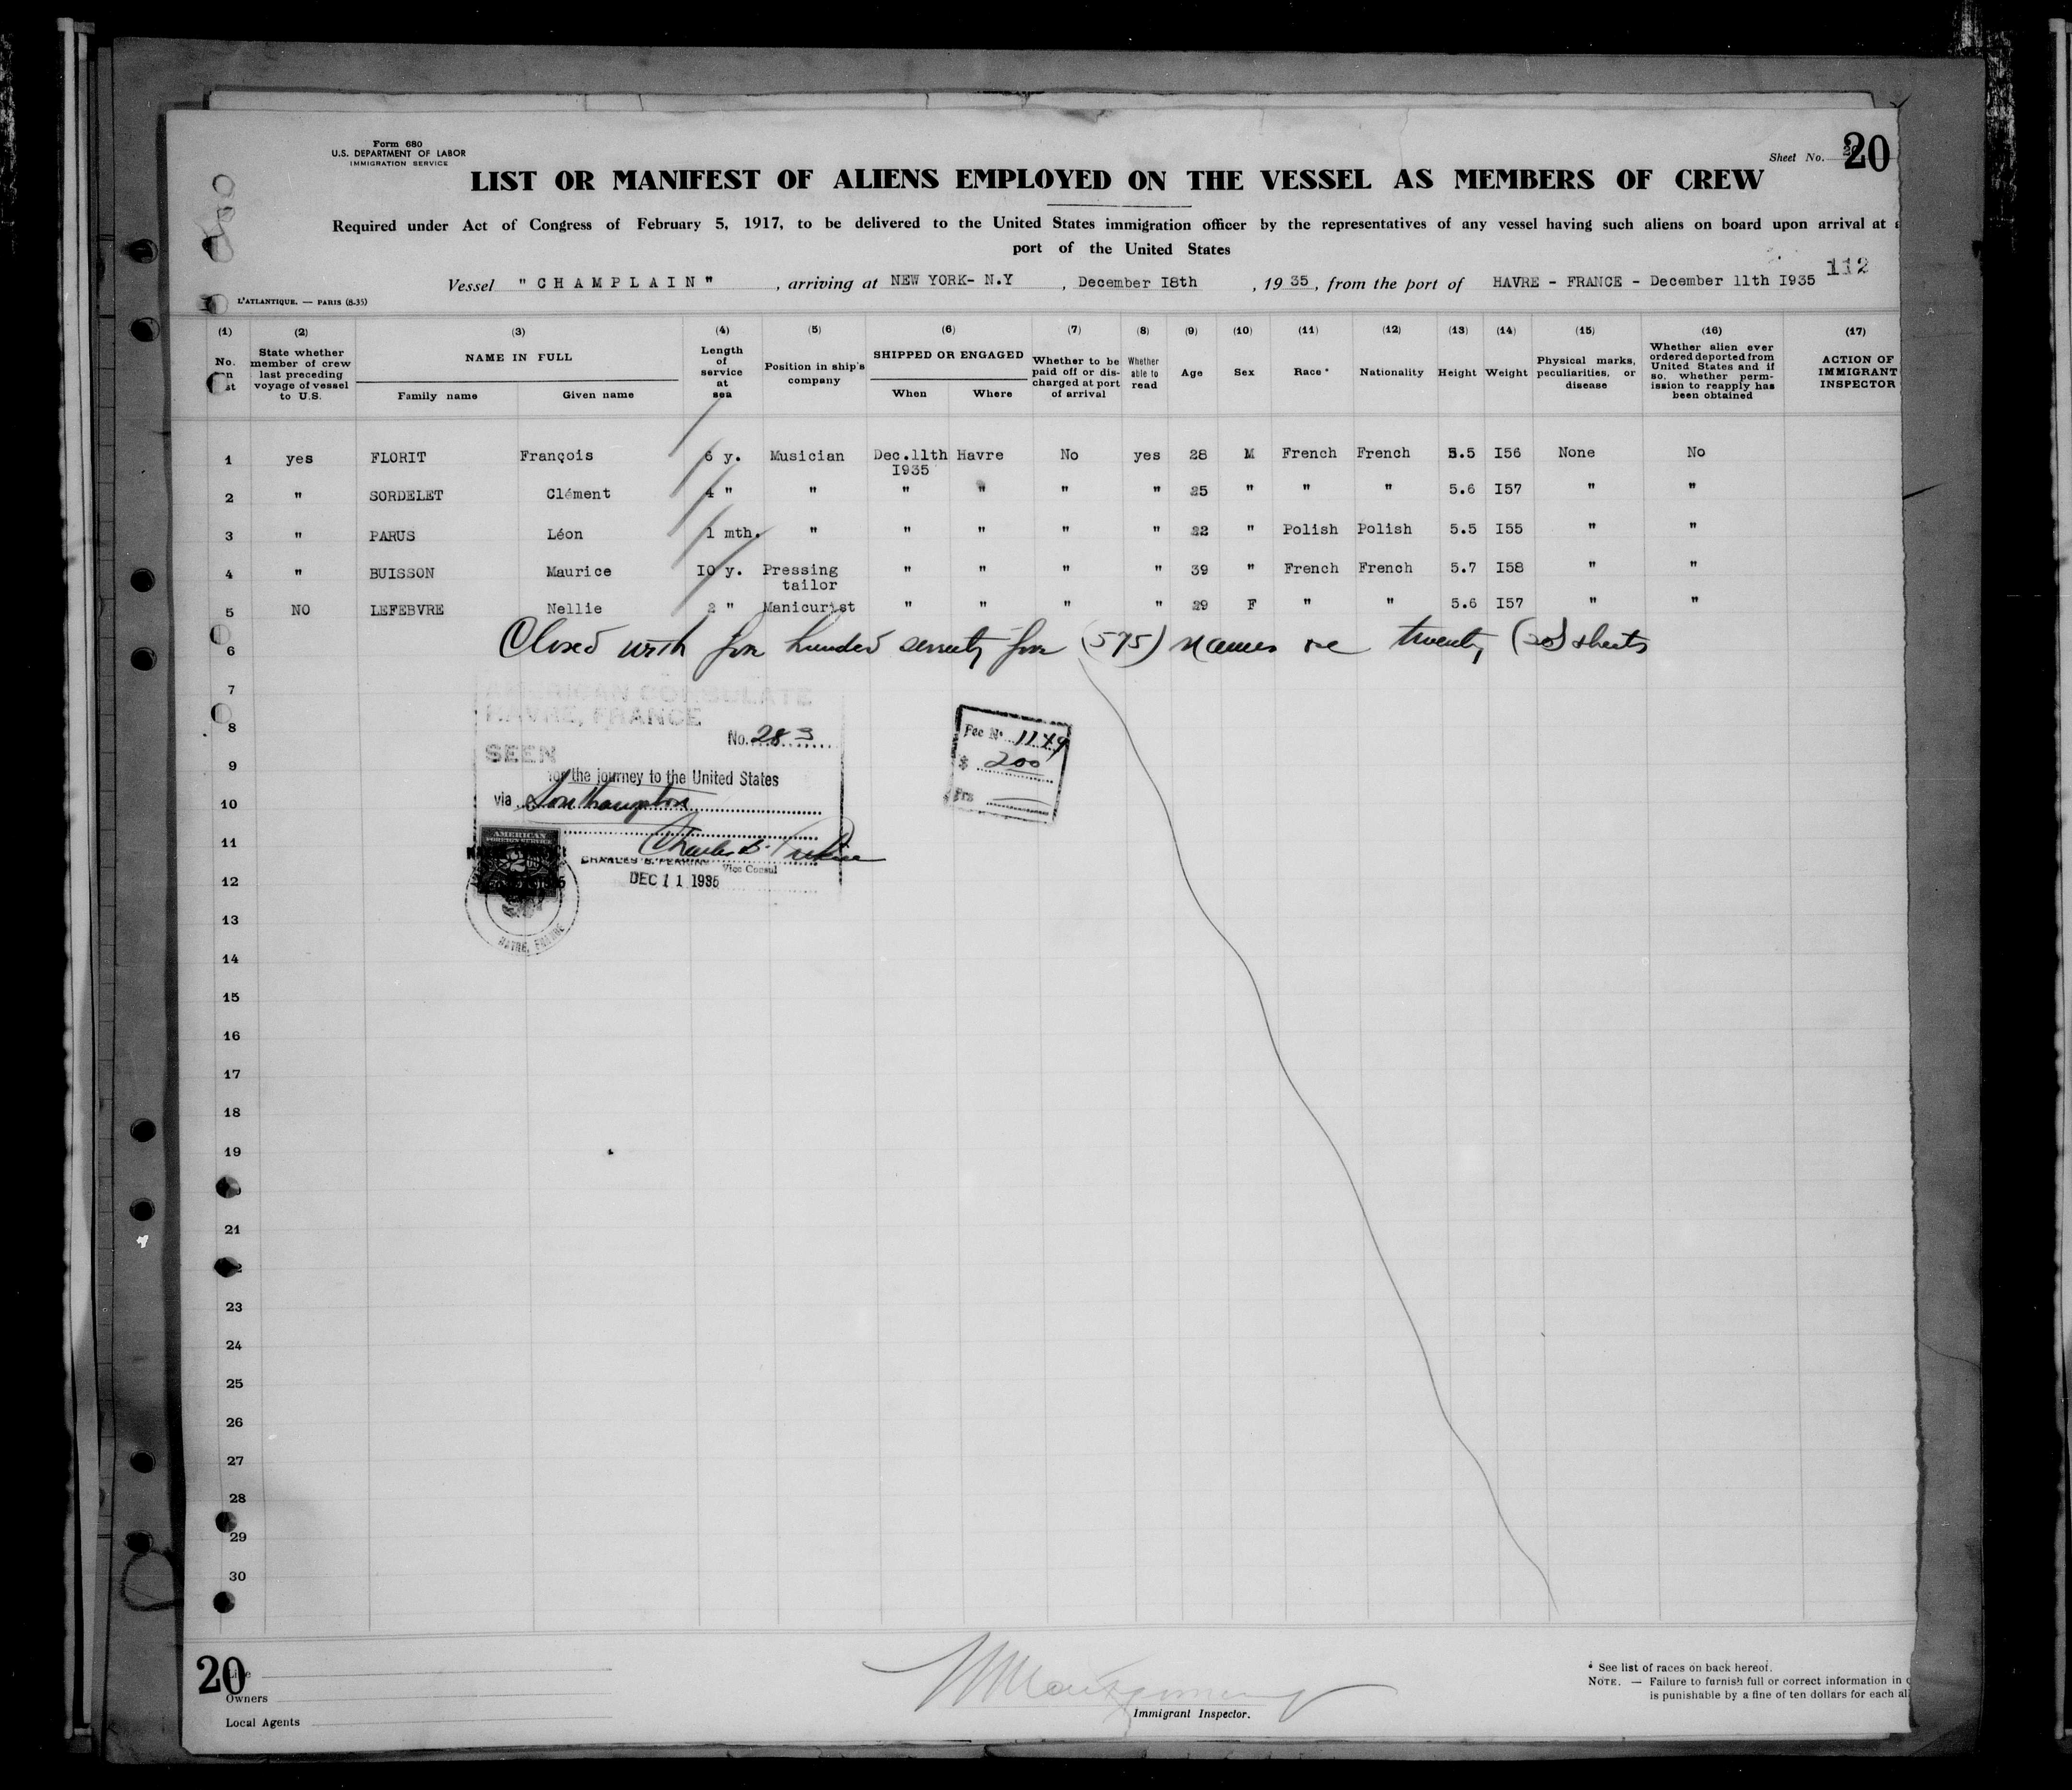 Form 680
U.S. DEPARTMENT OF LABOR
IMMIGRATION SERVICE
Sheet No. 20
LIST OR MANIFEST OF ALIENS EMPLOYED ON THE VESSEL AS MEMBERS OF CREW
Required under Act of Congress of February 5, 1917, to be delivered to the United States immigration officer by the representatives of any vessel having such aliens on board upon arrival at
port of the United States
112
Vessel "CHAMPLAIN", arriving at NEW YORK- N.Y, December I8th, 1935, from the port of HAVRE - FRANCE - December 11th I935
L'ATLANTIQUE. — PARIS (8-35)
(1) (2) (3) (4) (5) (6) (7) (8) (9) (10) (11) (12) (13) (14) (15) (16) (17)
No.
State whether member of crew last preceding voyage of vessel to U.S.
NAME IN FULL
Family name
Given name
Length of service at sea
Position in ship's company
SHIPPED OR ENGAGED
When
Where
Whether to be paid off or discharged at port of arrival
Whether able to read
Age
Sex
Race *
Nationality
Height
Weight
Physical marks, peculiarities, or disease
Whether alien ever ordered deported from United States and if so, whether permission to reapply has been obtained
ACTION OF IMMIGRANT INSPECTOR
1 yes FLORIT François 6 y. Musician Dec.11th I935 Havre No yes 28 M French French 5.5 I56 None No
2 " SORDELET Clément 4 " " " " " " 25 " " " 5.6 I57 " "
3 " PARUS Léon 1 mth. " " " " " 22 " Polish Polish 5.5 I55 " "
4 " BUISSON Maurice I0 y. Pressing tailor " " " " 39 " French French 5.7 I58 " "
5 NO LEFEBVRE Nellie 2 " Manicurist " " " " 29 F " " 5.6 I57 " "
6
Closed with five hundred seventy five (575) names on twenty (20) sheets
7
AMERICAN CONSULATE
HAVRE, FRANCE
8
No. 283
SEEN
9
for the journey to the United States
via Southampton
10
11
Charles B. Perkins
CHARLES B. PERKINS
Vice Consul
12
DEC 11 1935
AMERICAN
FOREIGN SERVICE
HAVRE, FRANCE
Fee No. 1149
$ 200
Frs
13
14
15
16
17
18
19
21
23
24
25
26
27
28
29
30
20
Line
Owners
Local Agents
Montgomery
Immigrant Inspector.
* See list of races on back hereof.
NOTE. — Failure to furnish full or correct information in
is punishable by a fine of ten dollars for each